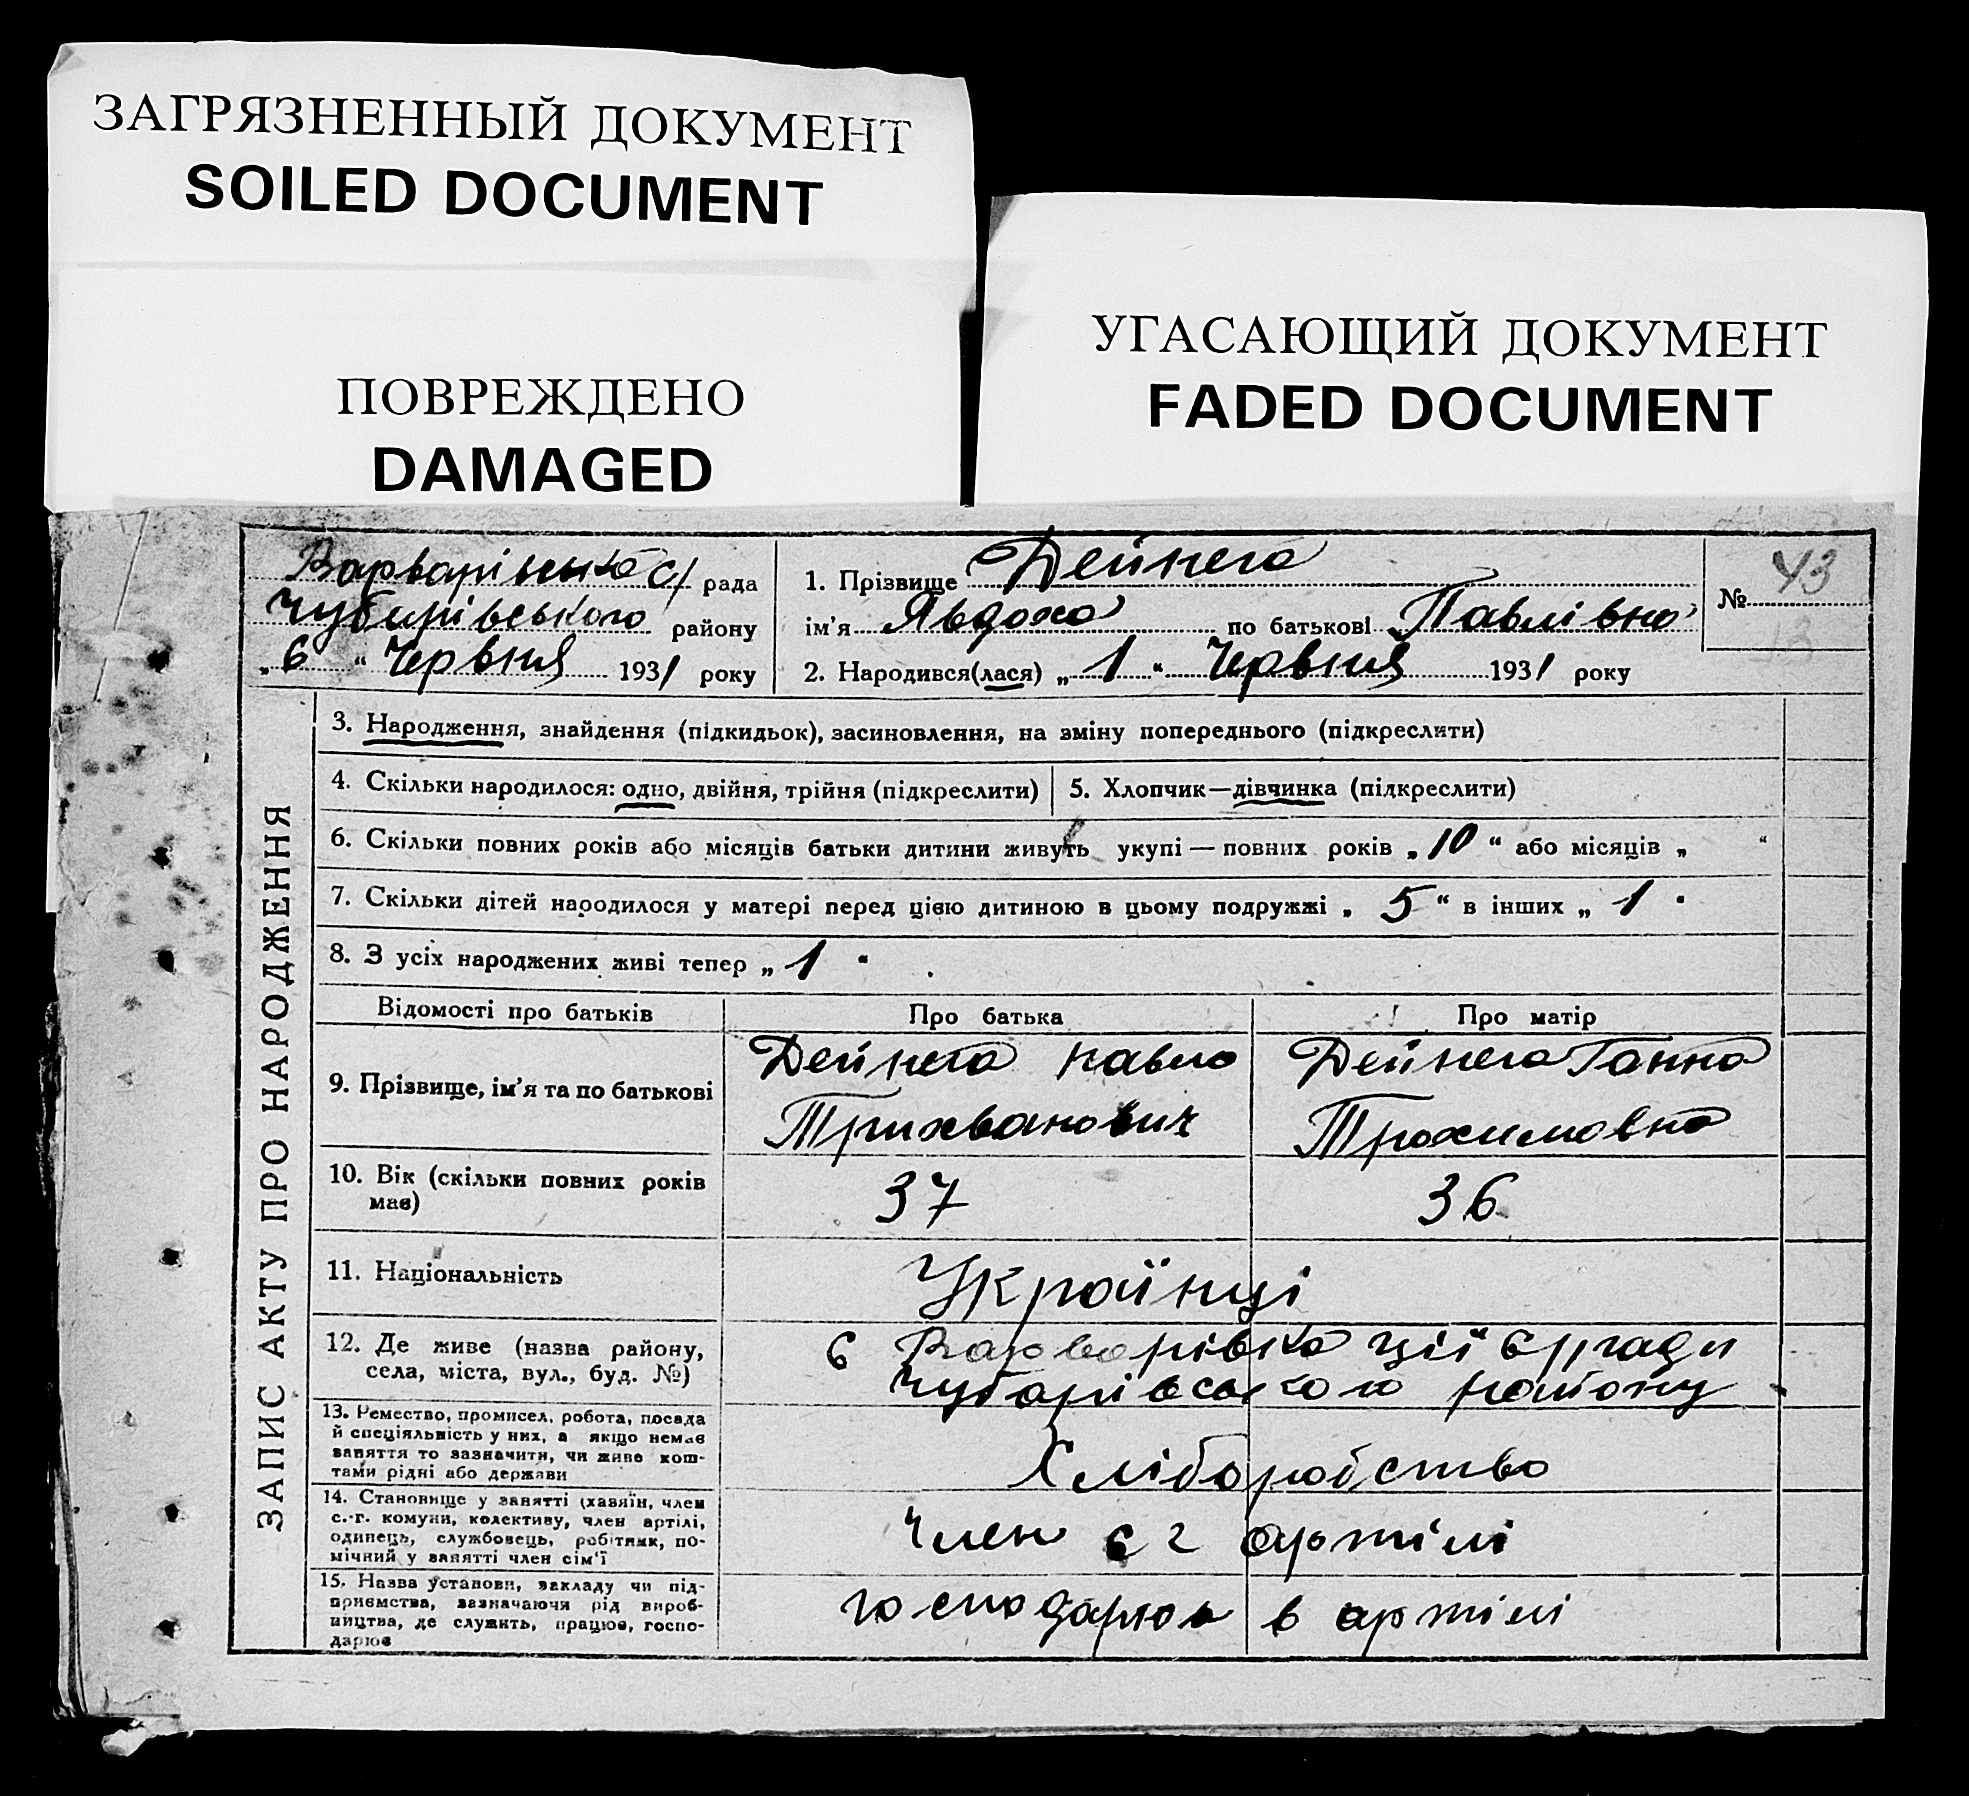 ЗАГРЯЗНЕННЫЙ ДОКУМЕНТ
SOILED DOCUMENT
ПОВРЕЖДЕНО
DAMAGED
УГАСАЮЩИЙ ДОКУМЕНТ
FADED DOCUMENT
Варварівська с/ рада
Чубарівського району
„ 6 “ Червня 1931 року
1. Прізвище Дейнега
ім'я Явдоха по батькові Павлівна
2. Народився(лася) „ 1 “ Червня 1931 року
№ 43
ЗАПИС АКТУ ПРО НАРОДЖЕННЯ
3. Народження, знайдення (підкидьок), засиновлення, на зміну попереднього (підкреслити)
4. Скільки народилося: одно, двійня, трійня (підкреслити)
5. Хлопчик—дівчинка (підкреслити)
6. Скільки повних років або місяців батьки дитини живуть укупі — повних років „ 10 “ або місяців „ “
7. Скільки дітей народилося у матері перед цією дитиною в цьому подружжі „ 5 “ в інших „ 1 “
8. З усіх народжених живі тепер „ 1 “
Відомості про батьків
Про батька
Про матір
9. Прізвище, ім'я та по батькові
Дейнега Павло
Трихванович
Дейнега Ганна
Трохимовна
10. Вік (скільки повних років
має)
37
36
11. Національність
Українці
12. Де живе (назва району,
села, міста, вул., буд. №)
с Варварівка ції с/ради
Чубарівського району
13. Ремество, промисел, робота, посада
й спеціяльність у них, а якщо немає
заняття то зазначити, чи живе кош-
тами рідні або держави
Хліборобство
14. Становище у занятті (хазяїн, член
с.-г. комуни, колективу, член артілі,
одинець, службовець, робітник, по-
мічний у занятті член сім'ї
Член с г артілі
15. Назва установи, закладу чи під-
приємства, зазначаючи рід вироб-
ництва, де служить, працює, госпо-
дарює
господарює в артілі